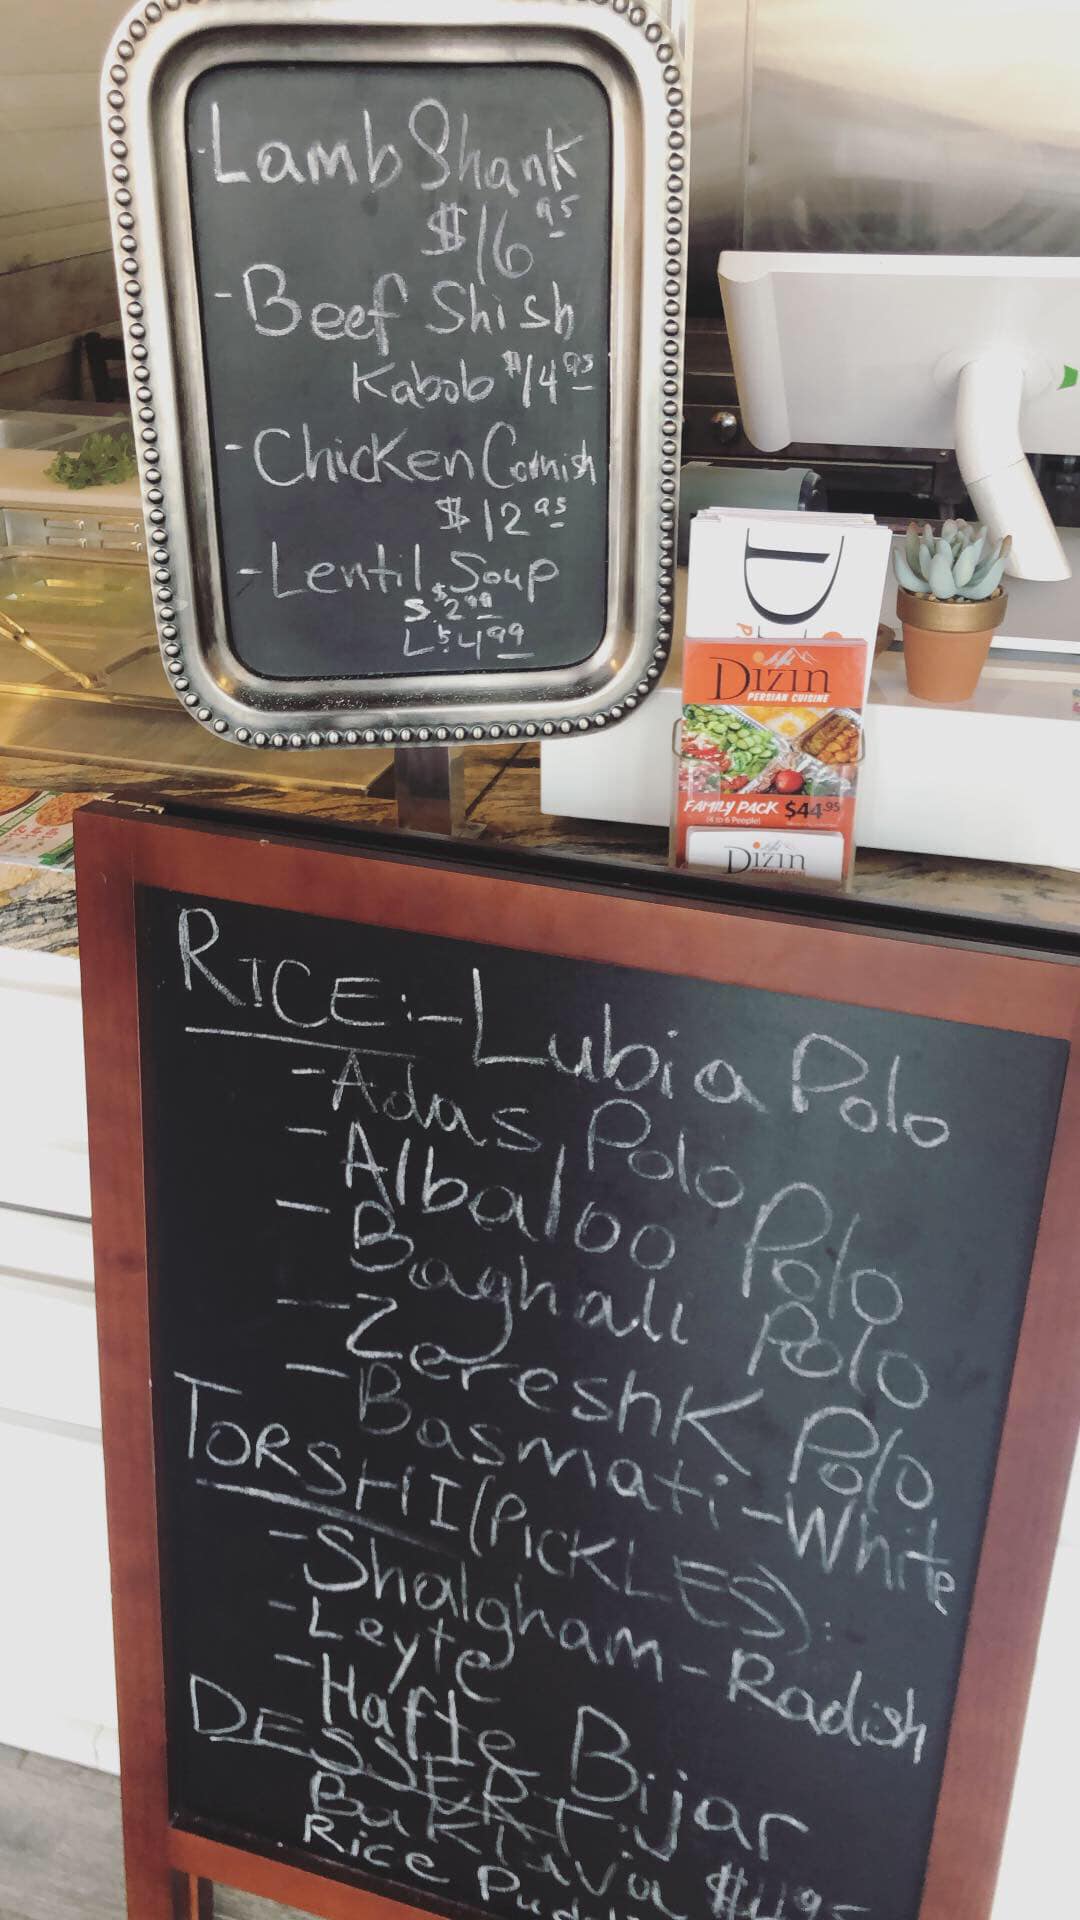 -Lamb Shank
$16 95
-Beef Shish
Kabob $14 95
-Chicken Cornish
$12 95
-Lentil Soup
S. $2 99
L. $4 99
D
Dizin
PERSIAN CUISINE
FAMILY PACK $44.95
(4 to 6 People)
Dizin
PERSIAN CUISINE
RICE:-Lubia Polo
-Adas Polo
-Albaloo Polo
-Baghali Polo
-Zereshk Polo
-Basmati-White
TORSHI (PICKLES):
-Shalgham-Radish
-Leyte
-Hafte Bijar
DESSERT:
Baklava $4.95
Rice